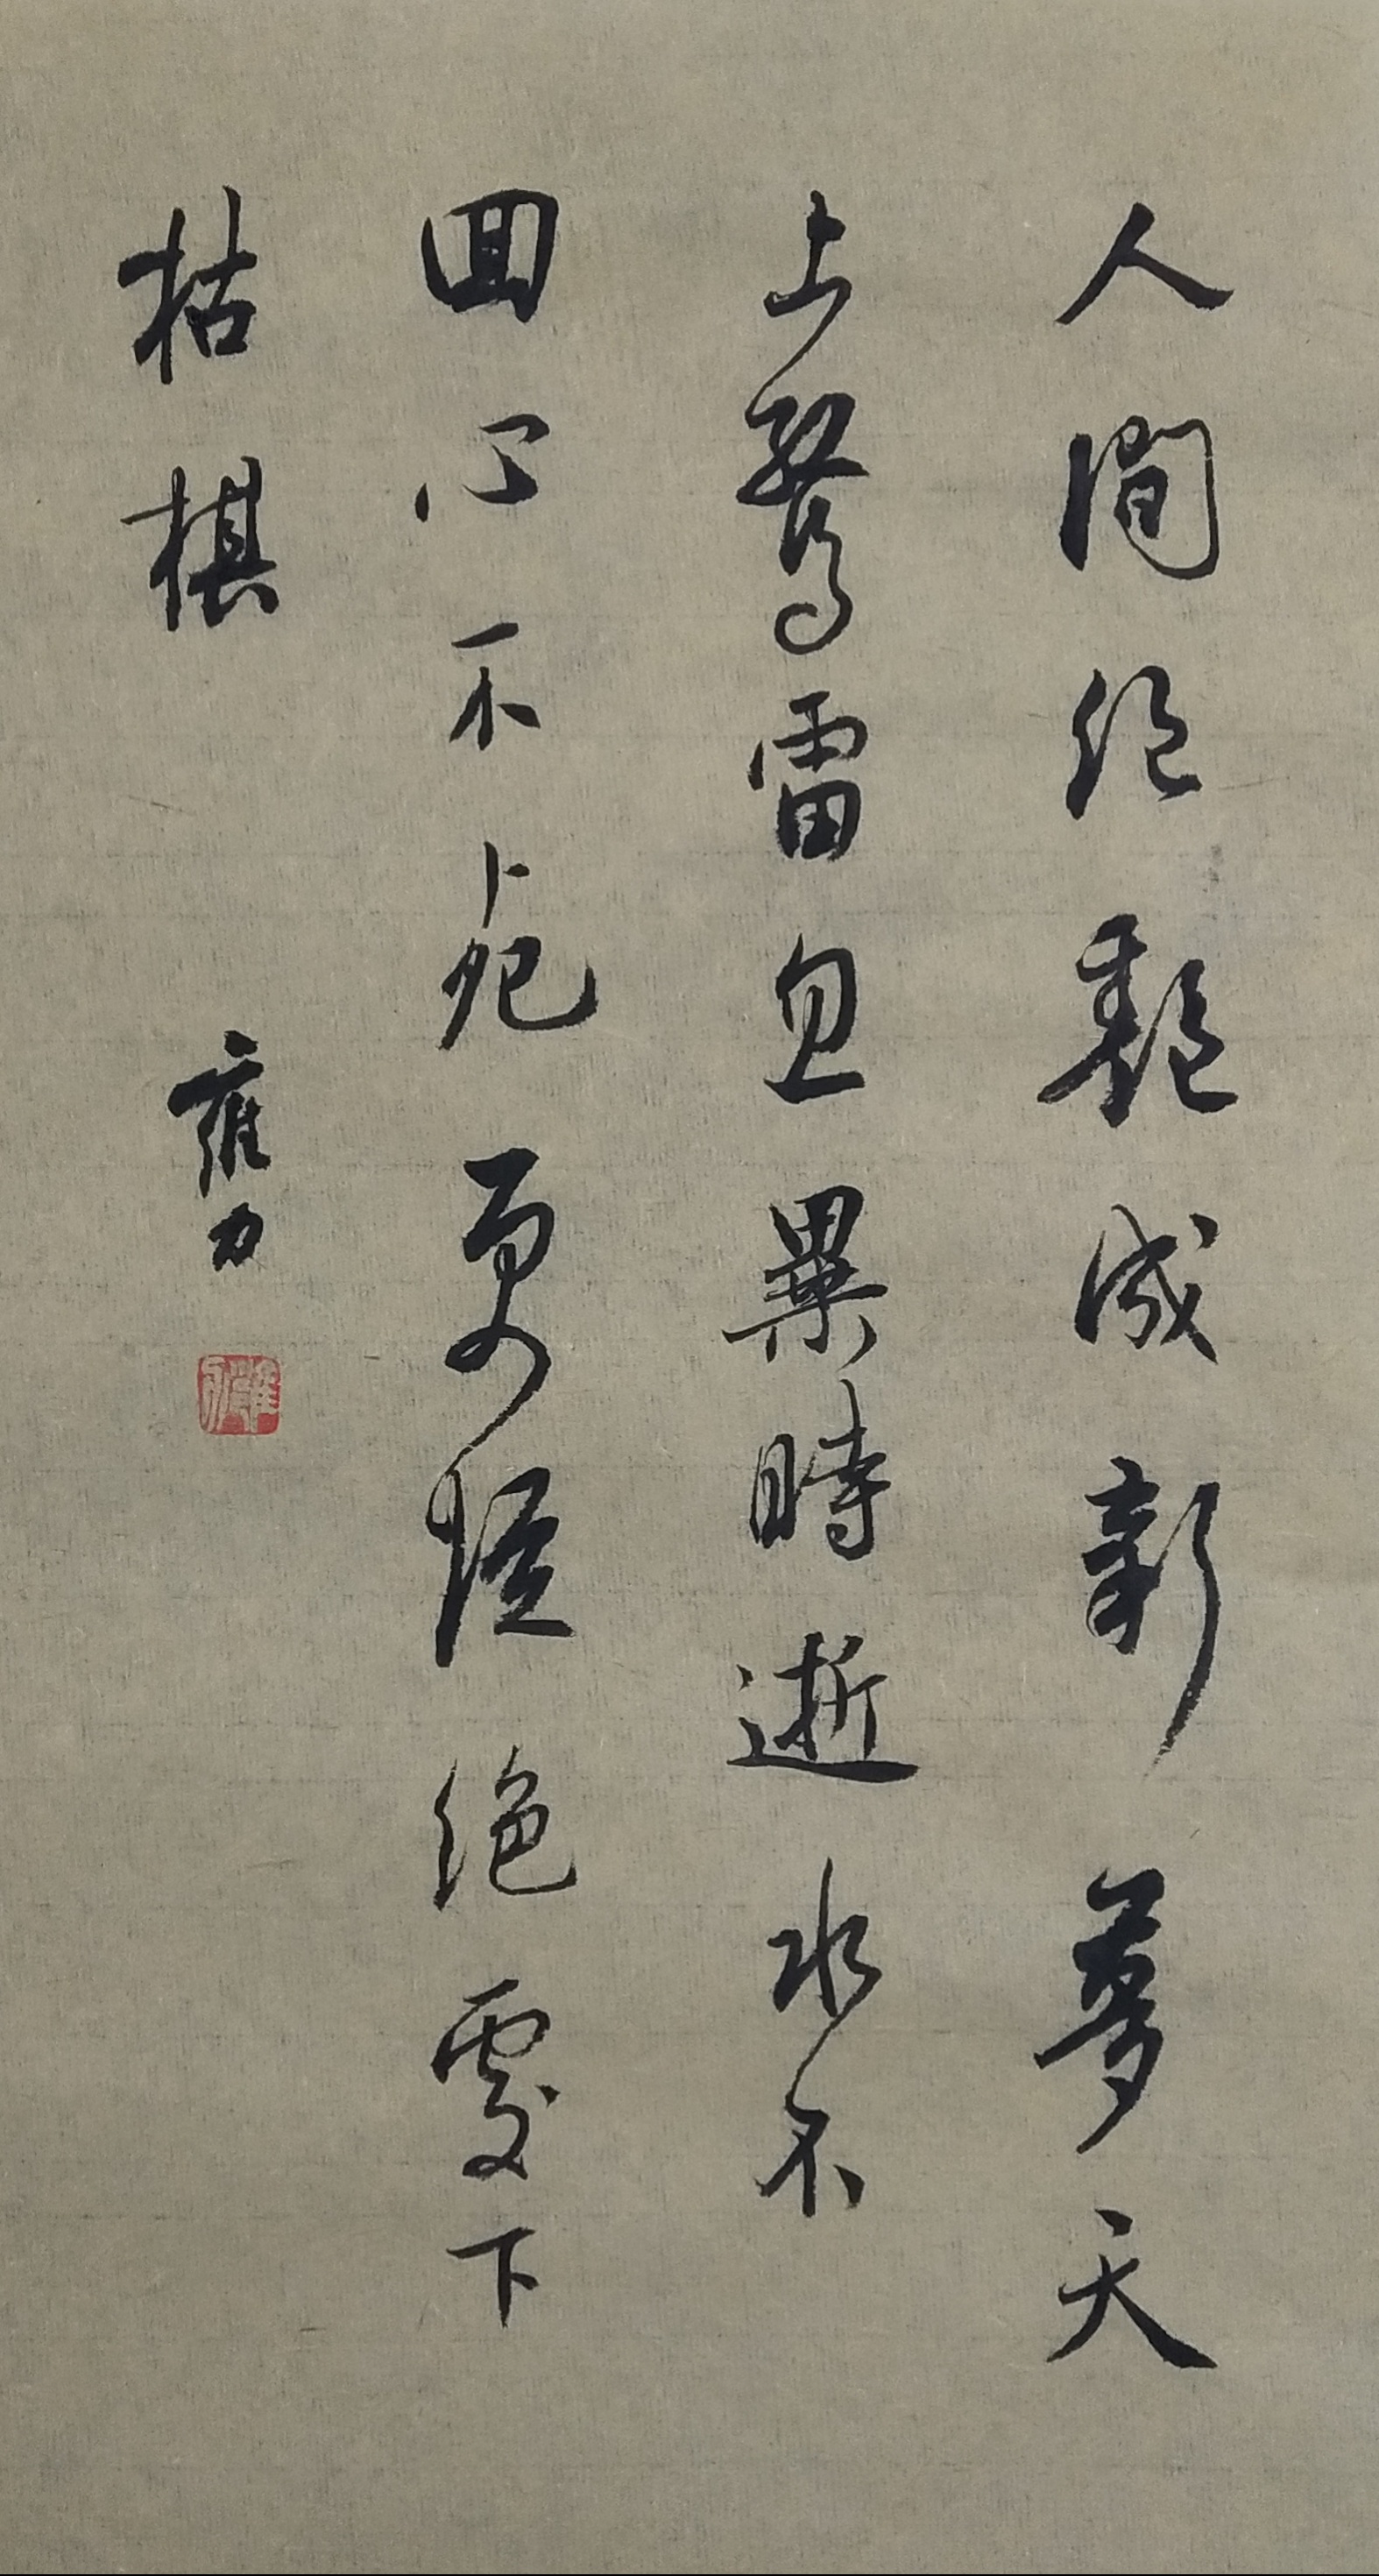 人間绝艷成新夢天
上驚雷忽異時逝水不
回心不死更從绝處下
枯棋
雍力